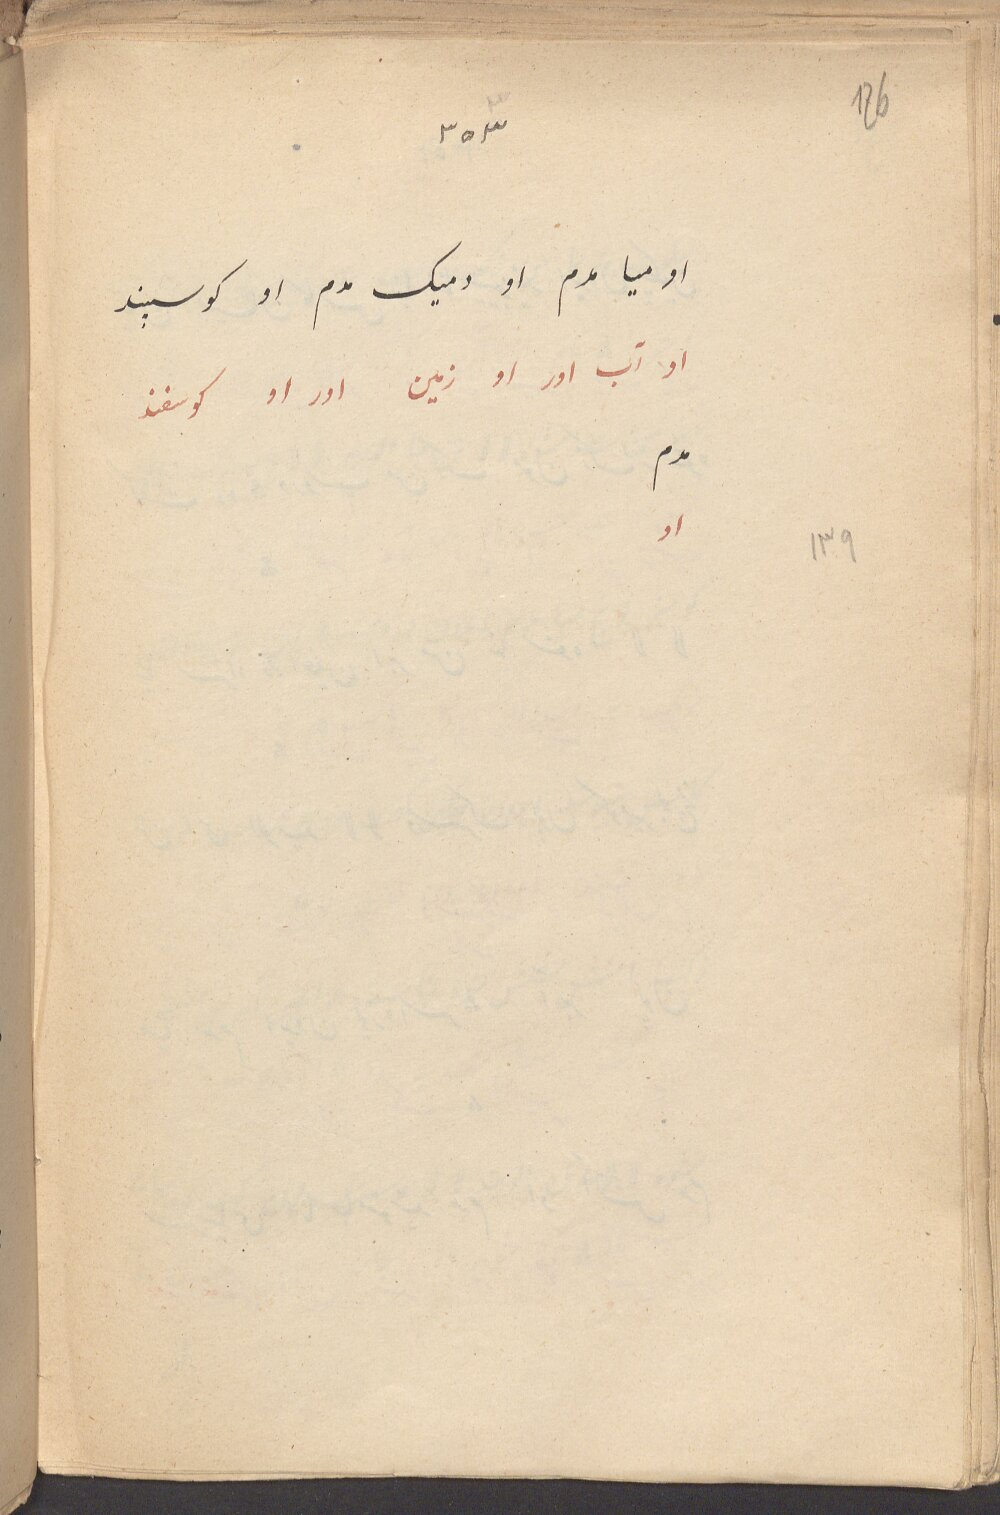 126
۳۵۳
او میا مدم او دمیک مدم او کوسپند
او آب اور او زمین اور او کوسفند
مدم
او
۱۳۹